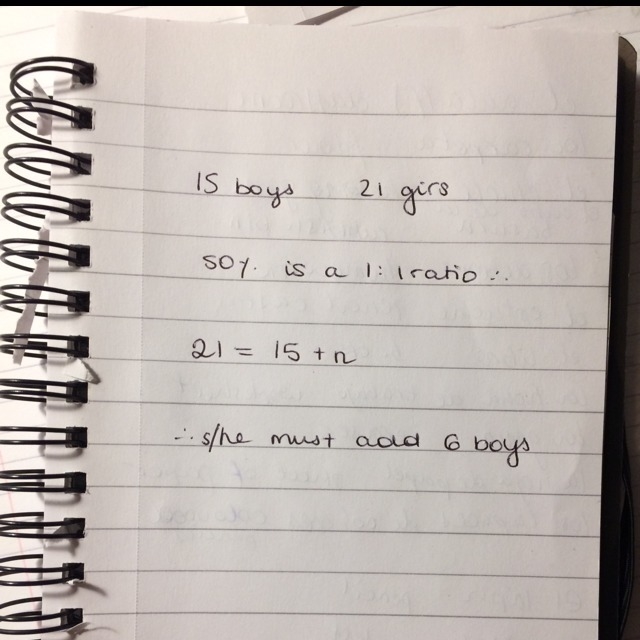 15 boys 21 girs
50%. is a 1:1 ratio ∴
21 = 15 + n
∴ s/he must add 6 boys